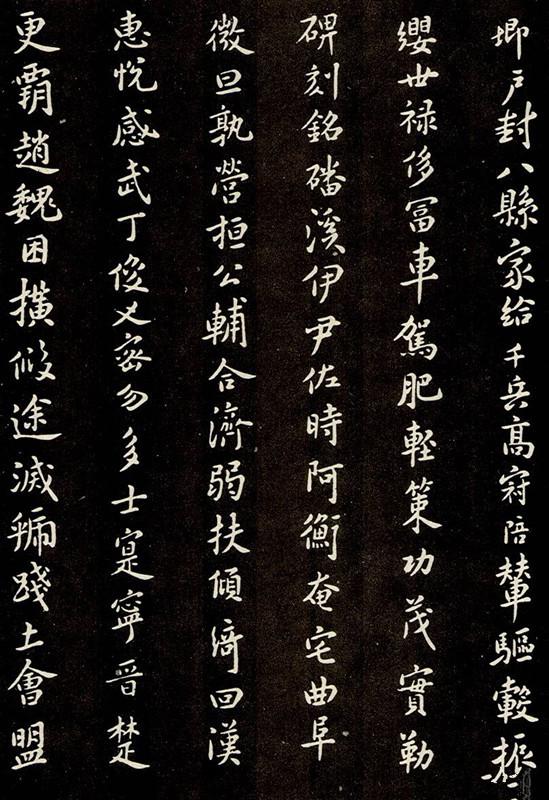 㙣戶封八縣家給千兵高冠陪輦驅轂振
纓世禄侈富車駕肥軽策功茂實勒
碑刻銘磻溪伊尹佐時阿衡奄宅曲阜
微旦孰營桓公輔合濟弱扶傾綺回漢
惠悅感武丁俊乂密勿多士寔寧晉楚
更霸趙魏困橫假途滅虢踐土會盟